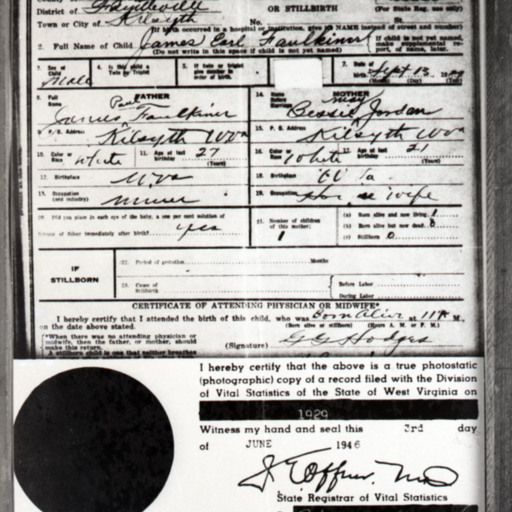 District of Fayetteville OR STILLBIRTH
Town or City of Kilsyth No. St.
(If birth occurred in a hospital or institution, give its NAME instead of street and number)
2. Full Name of Child James Carl Faulkiner
(Do not write in this space if child not named)
If child is not yet named, make supplemental report, of name, later.
1. Sex of Child Male
4. Is child a Twin or Triplet
5. If twin or triplet give number in order of birth.
7. Date of birth Sept 13, 19
(Month) (Day) (Year)
FATHER
8. Full Name James Paul Faulkiner
9. P. O. Address Kilsyth W Va
10. Color or Race White 11. Age at last birthday 27 (Years)
12. Birthplace W Va
13. Occupation (and industry) Miner
MOTHER
14. Name Before Marriage Bessie May Jordan
15. P. O. Address Kilsyth W Va
16. Color or Race White 17. Age at last birthday 21 (Years)
18. Birthplace
19. Occupation House wife
20. Did you place in each eye of the baby, a one per cent solution of nitrate of silver immediately after birth? yes
21. Number of children of this mother: 1
(a) Born alive and now living 1
(b) Born alive but now dead 0
(c) Stillborn 0
IF STILLBORN
22. Period of gestation Months
23. Cause of Stillbirth
Before Labor
During Labor
CERTIFICATE OF ATTENDING PHYSICIAN OR MIDWIFE*
I hereby certify that I attended the birth of this child, who was Born Alive at 11 M.,
on the date above stated. (Born alive or stillborn) (Hours A. M. or P. M.)
*When there was no attending physician or
midwife, then the father, or mother, should
make this return.
A stillborn child is one that neither breathes
(Signature) G G Hodges
I hereby certify that the above is a true photostatic
(photographic) copy of a record filed with the Division
of Vital Statistics of the State of West Virginia on
1929
Witness my hand and seal this 3rd day
of JUNE 1946
State Registrar of Vital Statistics